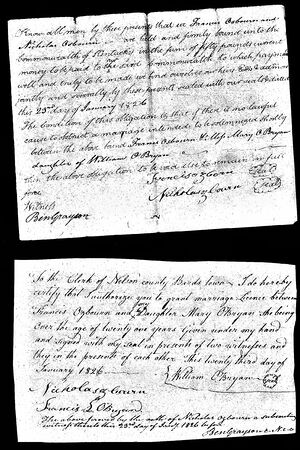 Know all men by these presents that we Francis Osbourn and
Nicholas Osbourn are held and firmly bound unto the
Commonwealth of Kentucky in the sum of fifty pounds current
money to be paid to the said Commonwealth to which payment
well and truly to be made we bind ourselves our heirs &c
jointly and severally by these presents sealed with our seals dated
this 23rd day of January 1826
The Condition of this obligation is that if there is no lawful
cause to obstruct a marriage intended to be solemnized shortly
between the above bound Francis Osbourn & Miss Mary O Bryan
daughter of William O Bryan
then the above obligation to be void else to remain in full
force
Witness
Ben Grayson
Francis ozbourn Seal
Nicholas ozbourn Seal
To the Clerk of Nelson county Birds town I do hereby
certify that I authorize you to grant marriage Licence between
Francis Ozbourn and Daughter Mary O Bryan she being
over the age of twenty one years Given under my hand
and signed with my seal in presents of two witnesses and
they in the presents of each other this twenty third day of
January 1826
William O Bryan Seal
Nicholas ozbourn
Francis L O Bryan
The above proved by the oath of Nicholas Ozbourn a subscribing
witness thereto this 23rd day of Jany 1826 before
Ben Grayson